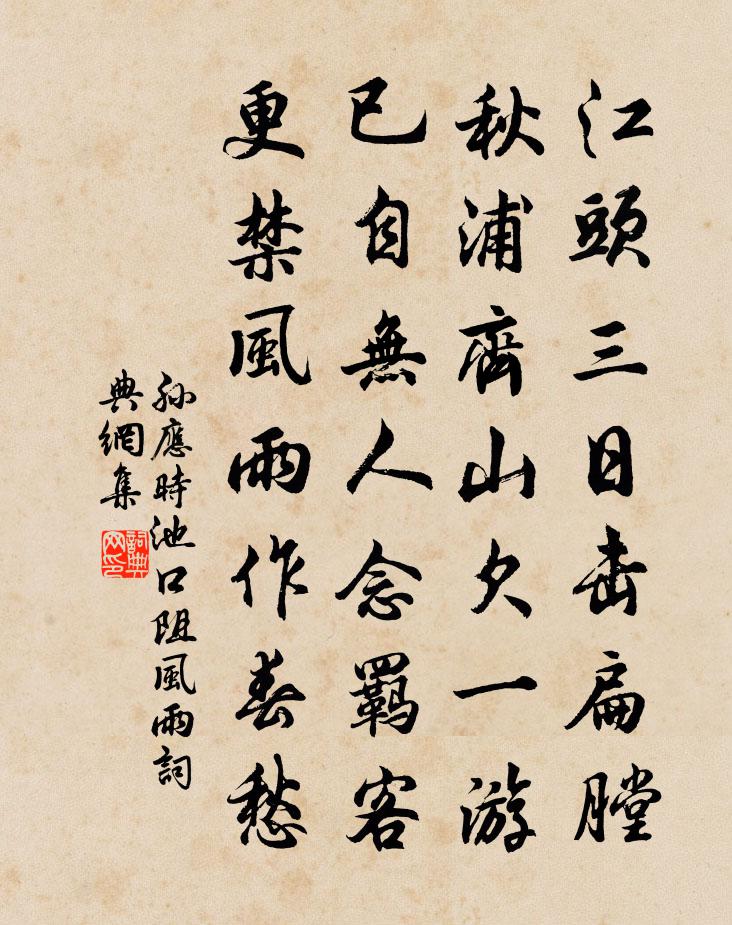 江頭三日击扁膛
秋浦齊山欠一游
已自無人念羈客
更禁風雨作春愁
孙應時池口阻風雨詞
典網集
詞典
网印